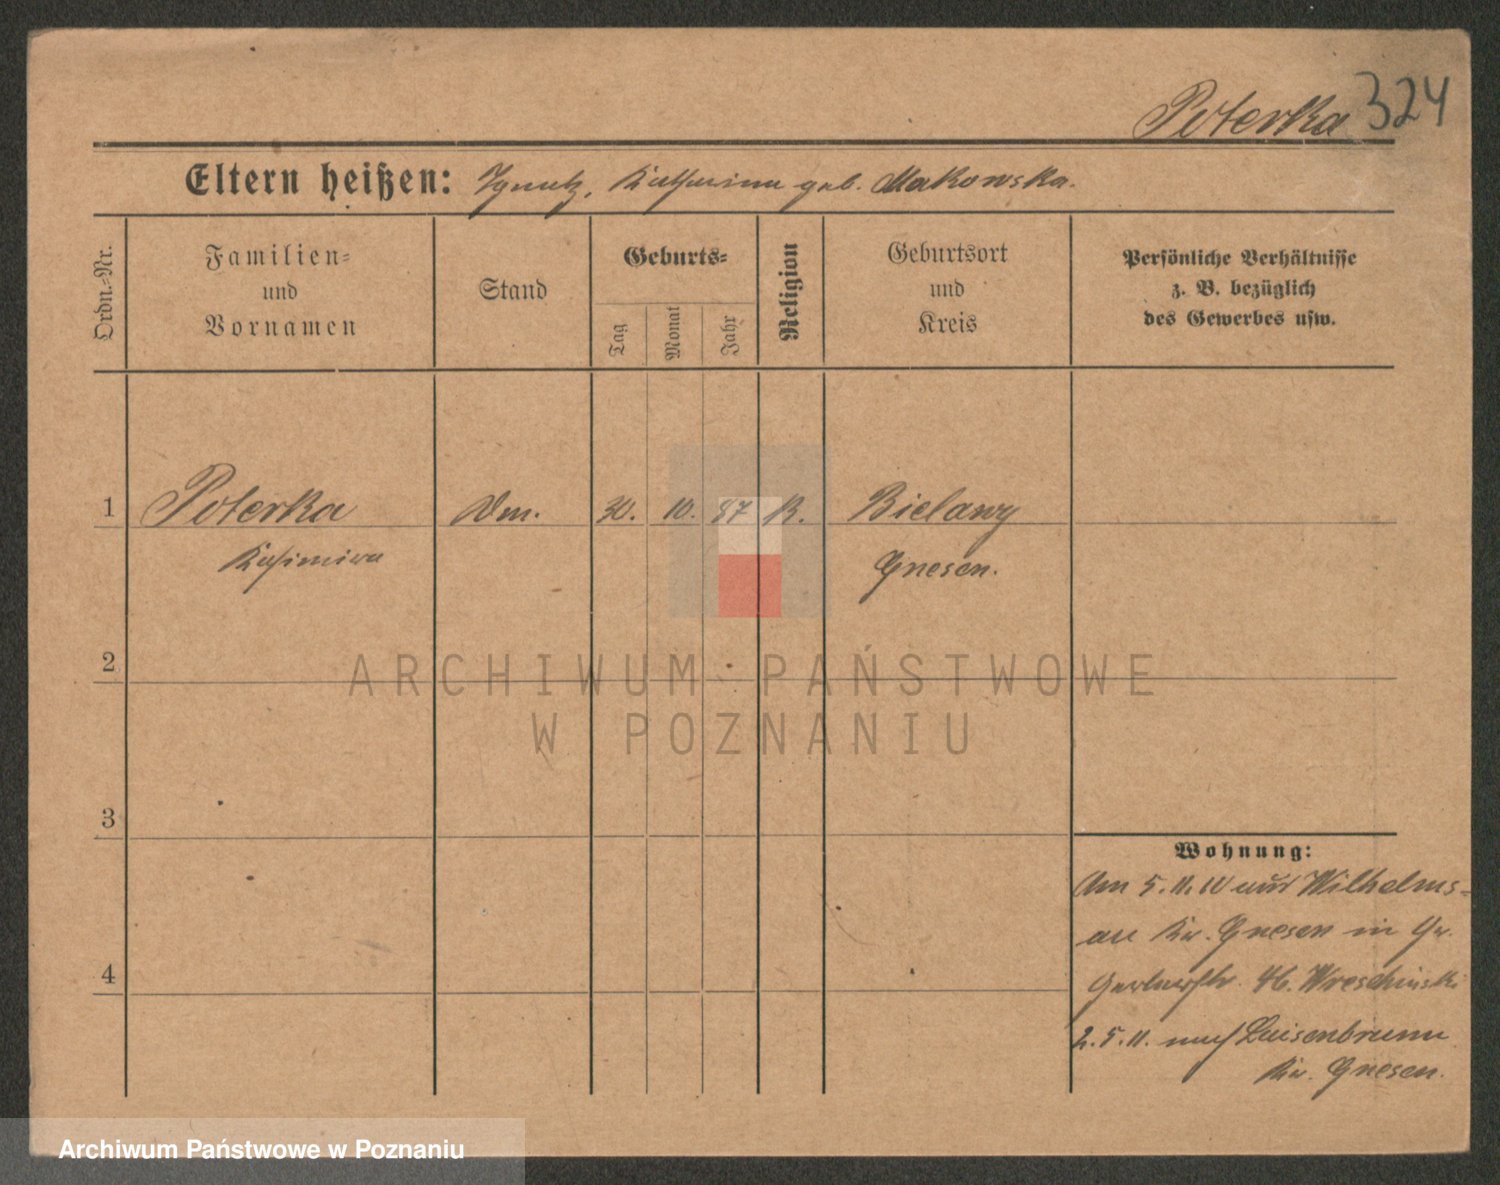 Poterka 324
Eltern heißen: Ignatz, Katharina geb. Makowska.
Ordn.=Nr.
Familien=
und
Vornamen
Stand
Geburts=
Tag
Monat
Jahr
Religion
Geburtsort
und
Kreis
Persönliche Verhältnisse
z. B. bezüglich
des Gewerbes usw.
1 Poterka 30. 10. 87 K. Bielawy
Kasimira Gnesen.
2
ARCHIWUM PAŃSTWOWE
W POZNANIU
3
Wohnung:
Am 5.11.10 aus Wilhelms=
au Kr. Gnesen in Gr.
Gerberstr. 46. Wreschinski
2.5.11. nach Luisenbrunn
Kr. Gnesen.
4
Archiwum Państwowe w Poznaniu